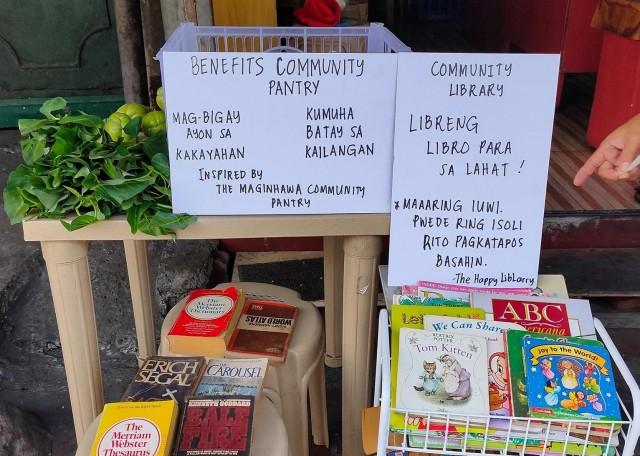 BENEFITS COMMUNITY
PANTRY
MAG-BIGAY
AYON SA
KAKAYAHAN
KUMUHA
BATAY SA
KAILANGAN
INSPIRED BY
THE MAGINHAWA COMMUNITY
PANTRY
COMMUNITY
LIBRARY
LIBRENG
LIBRO PARA
SA LAHAT!
* MAAARING IUWI.
PWEDE RING ISOLI
RITO PAGKATAPOS
BASAHIN.
-The Happy Library
The
Merriam
Webster
Dictionary
WORLD ATLAS
ERICH
SEGAL
CAROUSEL
The
Merriam
Webster
Thesaurus
KENNETH GODDARD
BALEFIRE
ABC
Americana
We Can Share
BEATRIX
POTTER
Tom Kitten
Joy to the World!